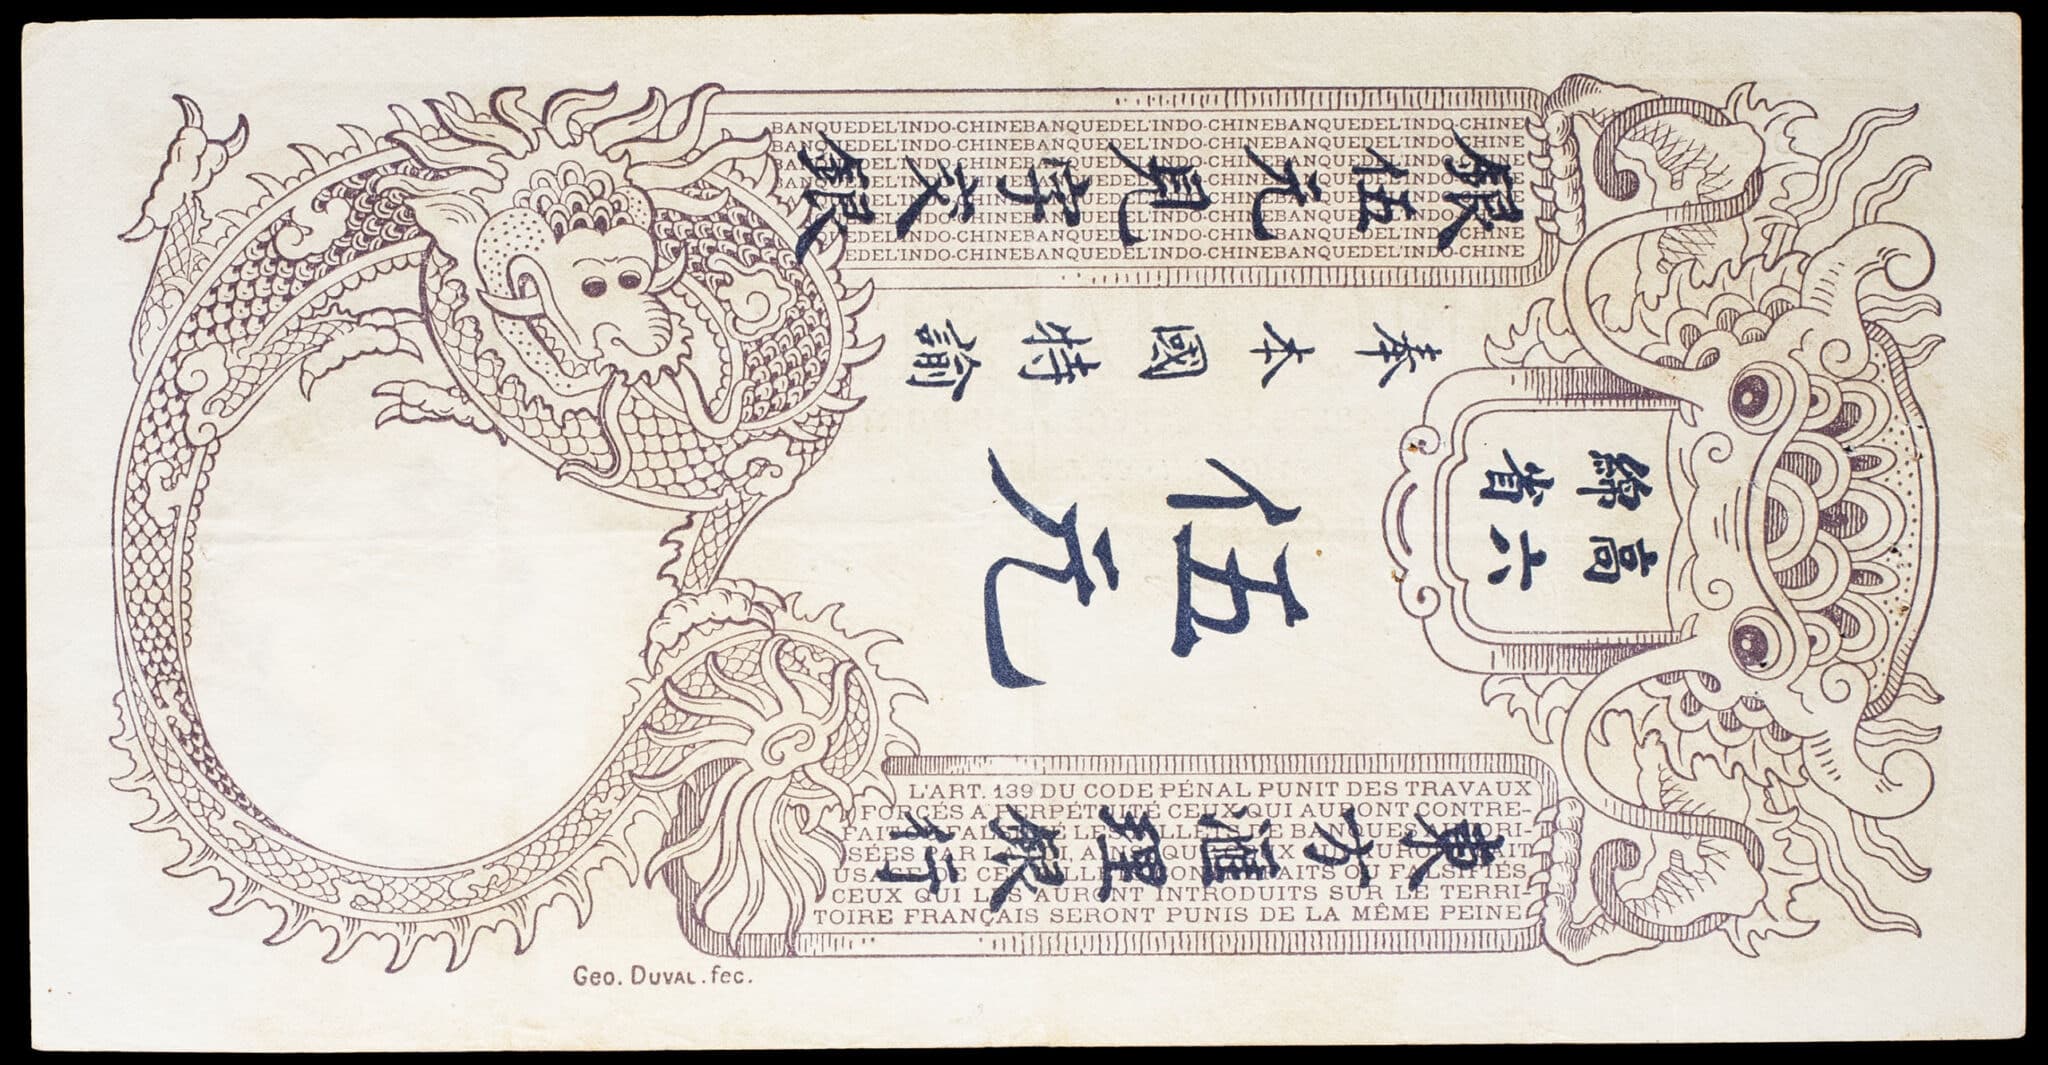 BANQUEDEL'INDO-CHINEBANQUEDEL'INDO-CHINEBANQUEDEL'INDO-CHINE
BANQUEDEL'INDO-CHINEBANQUEDEL'INDO-CHINEBANQUEDEL'INDO-CHINE
BANQUEDEL'INDO-CHINEBANQUEDEL'INDO-CHINEBANQUEDEL'INDO-CHINE
BANQUEDEL'INDO-CHINEBANQUEDEL'INDO-CHINEBANQUEDEL'INDO-CHINE
DEL'INDO-CHINEBANQUEDEL'INDO-CHINEBANQUEDEL'INDO-CHINE
DEL'INDO-CHINEBANQUEDEL'INDO-CHINEBANQUEDEL'INDO-CHINE
EDEL'INDO-CHINEBANQUEDEL'INDO-CHINEBANQUEDEL'INDO-CHINE
EDEL'INDO-CHINEBANQUEDEL'INDO-CHINEBANQUEDEL'INDO-CHINE
銀伍元見字交銀
奉本國特諭
高綿
六省
伍元
東方滙理銀行
L'ART. 139 DU CODE PÉNAL PUNIT DES TRAVAUX
FORCÉS A PERPÉTUITÉ CEUX QUI AURONT CONTRE-
FAIT OU FALSIFIÉ LES BILLETS DE BANQUES AUTORI-
SÉES PAR LA LOI, AINSI QUE CEUX QUI AURONT FAIT
USAGE DE CES BILLETS CONTREFAITS OU FALSIFIÉS
CEUX QUI LES AURONT INTRODUITS SUR LE TERRI-
TOIRE FRANÇAIS SERONT PUNIS DE LA MÊME PEINE
GEO. DUVAL. fec.